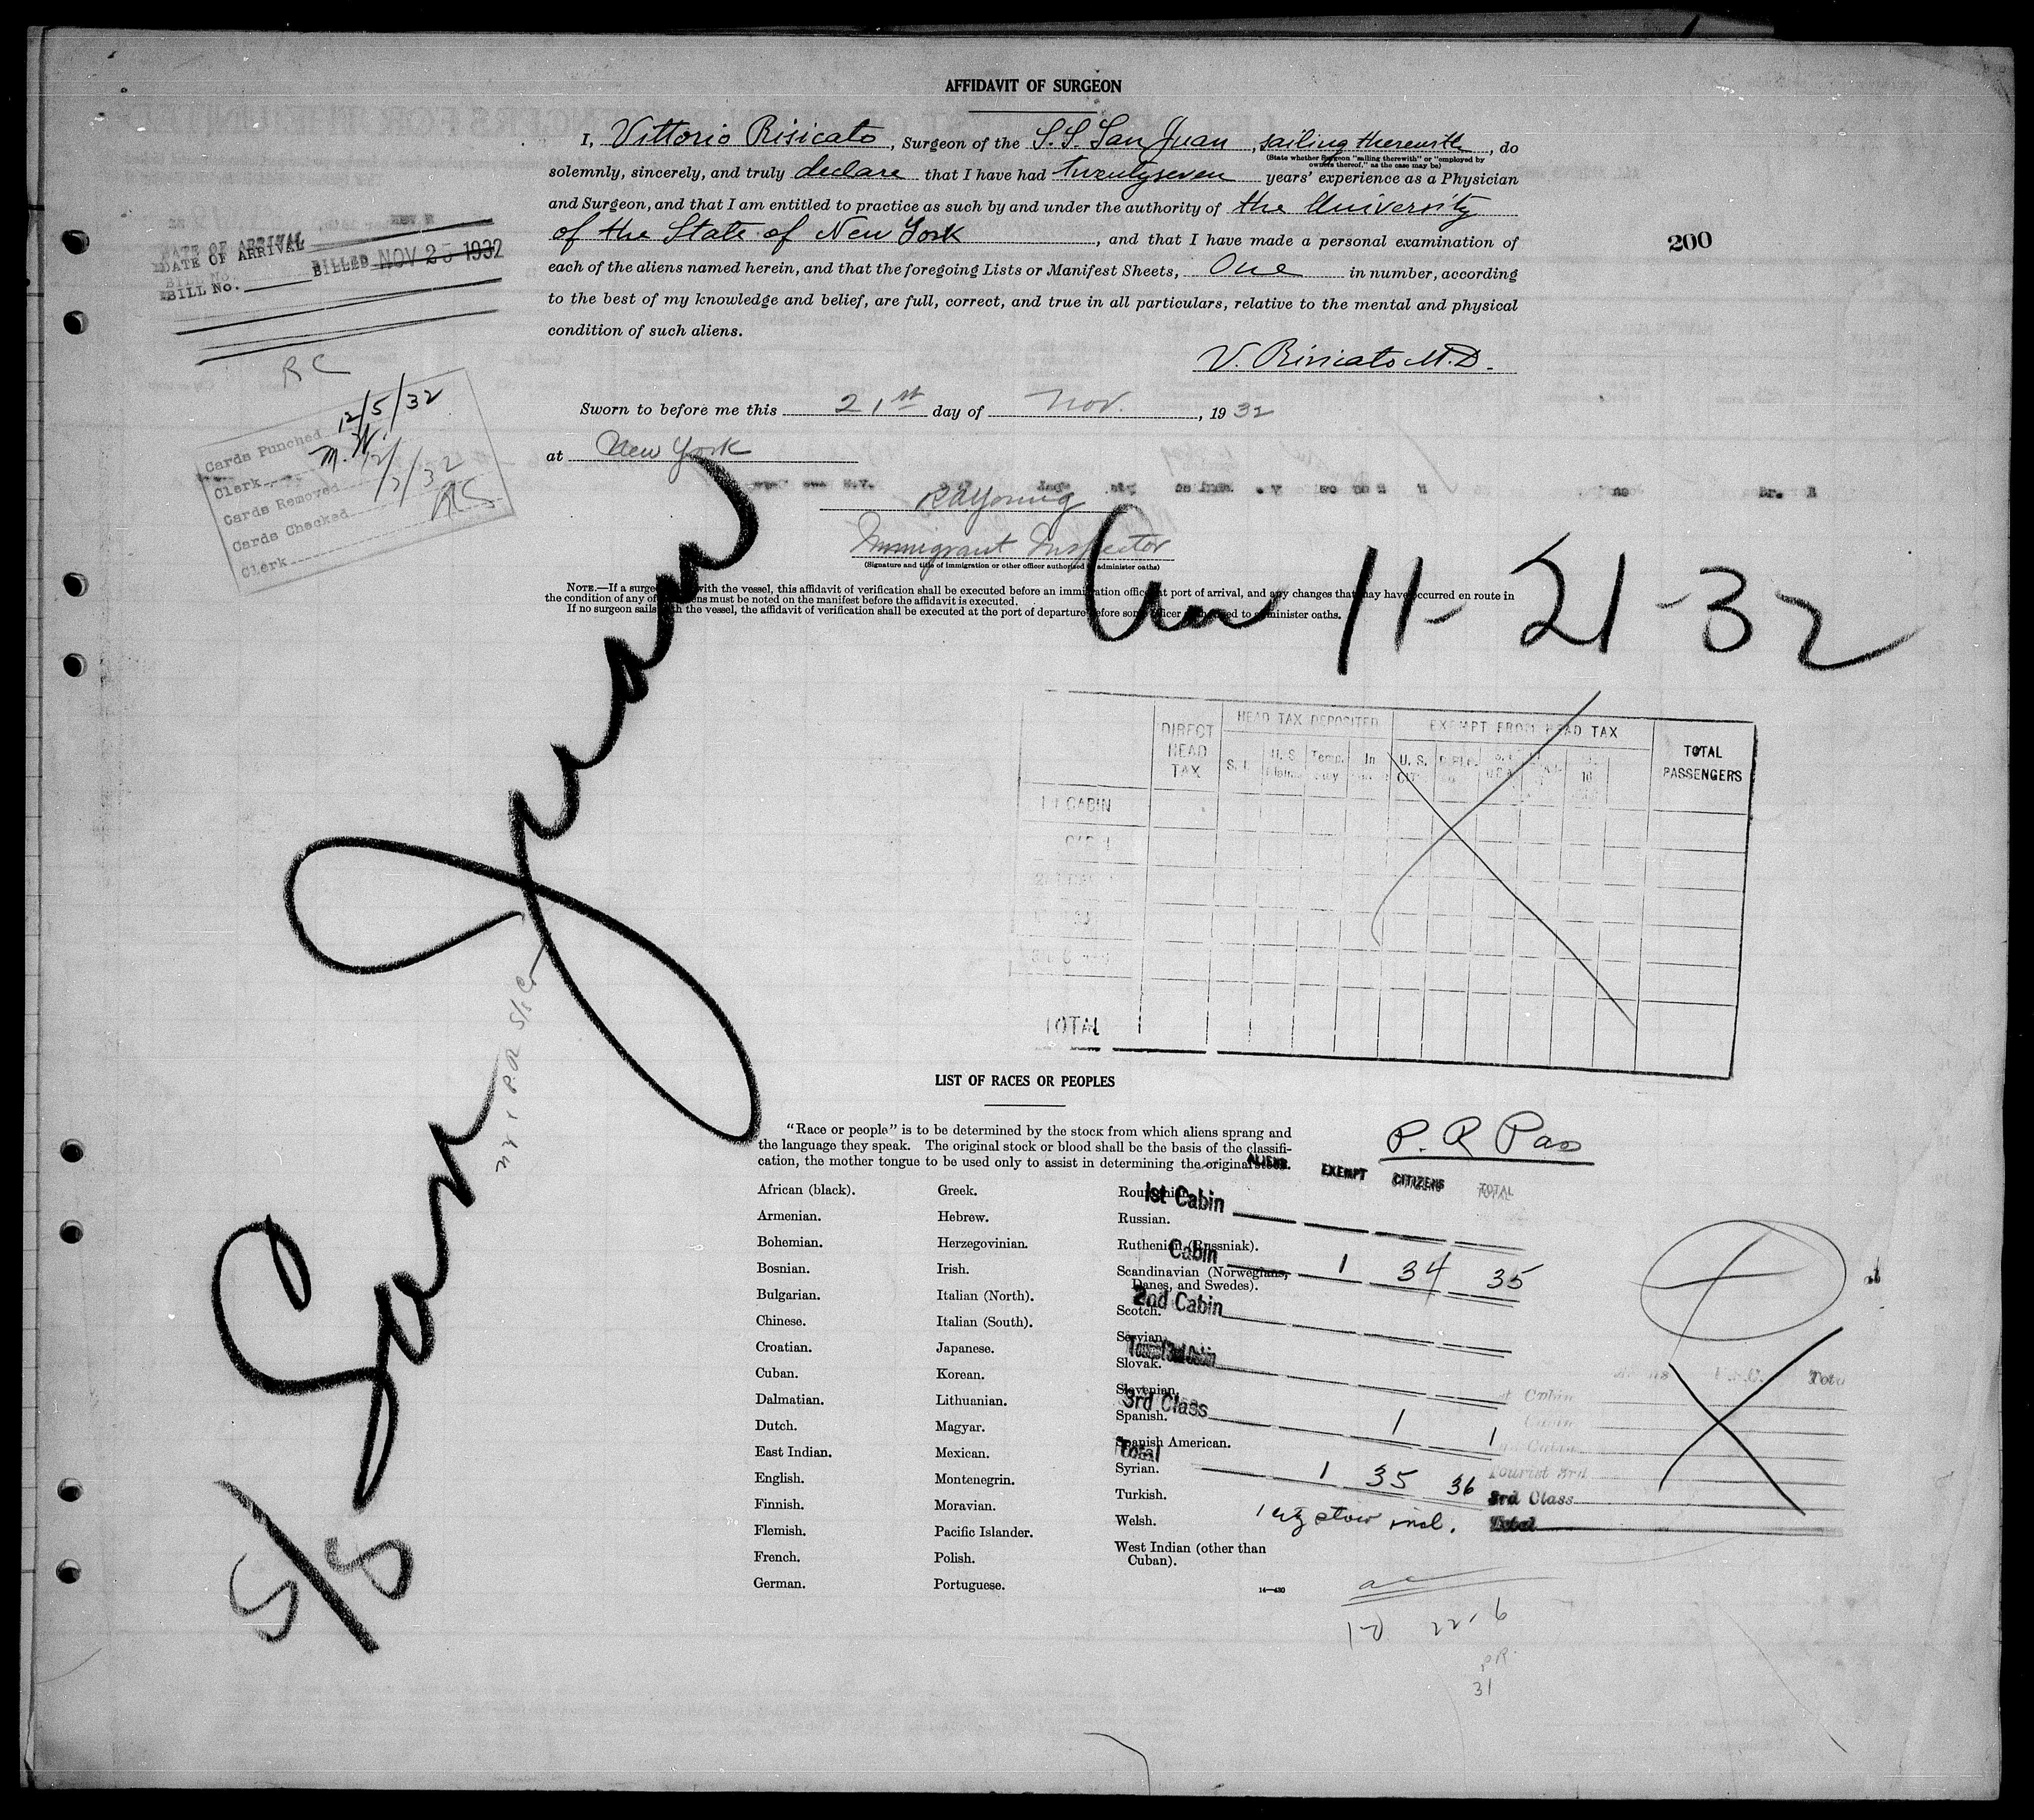 AFFIDAVIT OF SURGEON
I, Vittorio Risicato, Surgeon of the S.S. San Juan, sailing therewith, do
(State whether Surgeon "sailing therewith" or "employed by
owners thereof," as the case may be)
solemnly, sincerely, and truly declare that I have had twentyseven years' experience as a Physician
and Surgeon, and that I am entitled to practice as such by and under the authority of the University
of the State of New York, and that I have made a personal examination of
each of the aliens named herein, and that the foregoing Lists or Manifest Sheets, One in number, according
to the best of my knowledge and belief, are full, correct, and true in all particulars, relative to the mental and physical
condition of such aliens.
V. Risicato M.D.
Sworn to before me this 21st day of Nov., 1932
at New York
Immigrant Inspector
(Signature and title of immigration or other officer authorized to administer oaths)
NOTE.—If a surgeon sails with the vessel, this affidavit of verification shall be executed before an immigration officer at port of arrival, and any changes that may have occurred en route in
the condition of any of the aliens must be noted on the manifest before the affidavit is executed.
If no surgeon sails with the vessel, the affidavit of verification shall be executed at the port of departure before some officer authorized to administer oaths.
200
DATE OF ARRIVAL
BILL No. BILLED NOV 25 1932
RC
Cards Punched 12/5/32
Clerk M.W.
Cards Removed
Cards Checked
Clerk
S/S San Juan
11-21-32
DIRECT HEAD TAX
HEAD TAX DEPOSITED
EXEMPT FROM HEAD TAX
TOTAL PASSENGERS
TOTAL
LIST OF RACES OR PEOPLES
"Race or people" is to be determined by the stock from which aliens sprang and
the language they speak. The original stock or blood shall be the basis of the classifi-
cation, the mother tongue to be used only to assist in determining the original stock.
African (black).
Armenian.
Bohemian.
Bosnian.
Bulgarian.
Chinese.
Croatian.
Cuban.
Dalmatian.
Dutch.
East Indian.
English.
Finnish.
Flemish.
French.
German.
Greek.
Hebrew.
Herzegovinian.
Irish.
Italian (North).
Italian (South).
Japanese.
Korean.
Lithuanian.
Magyar.
Mexican.
Montenegrin.
Moravian.
Pacific Islander.
Polish.
Portuguese.
Roumanian.
Russian.
Ruthenian (Russniak).
Scandinavian (Norwegians,
Danes, and Swedes).
Scotch.
Servian.
Slovak.
Slovenian.
Spanish.
Spanish American.
Syrian.
Turkish.
Welsh.
West Indian (other than
Cuban).
14—430
P. R Pas
ALIENS EXEMPT CITIZENS TOTAL
1st Cabin
Cabin 1 34 35
2nd Cabin
3rd Class 1 1
Total 1 35 36
Tourist 3rd
3rd Class
Total
PR.
31